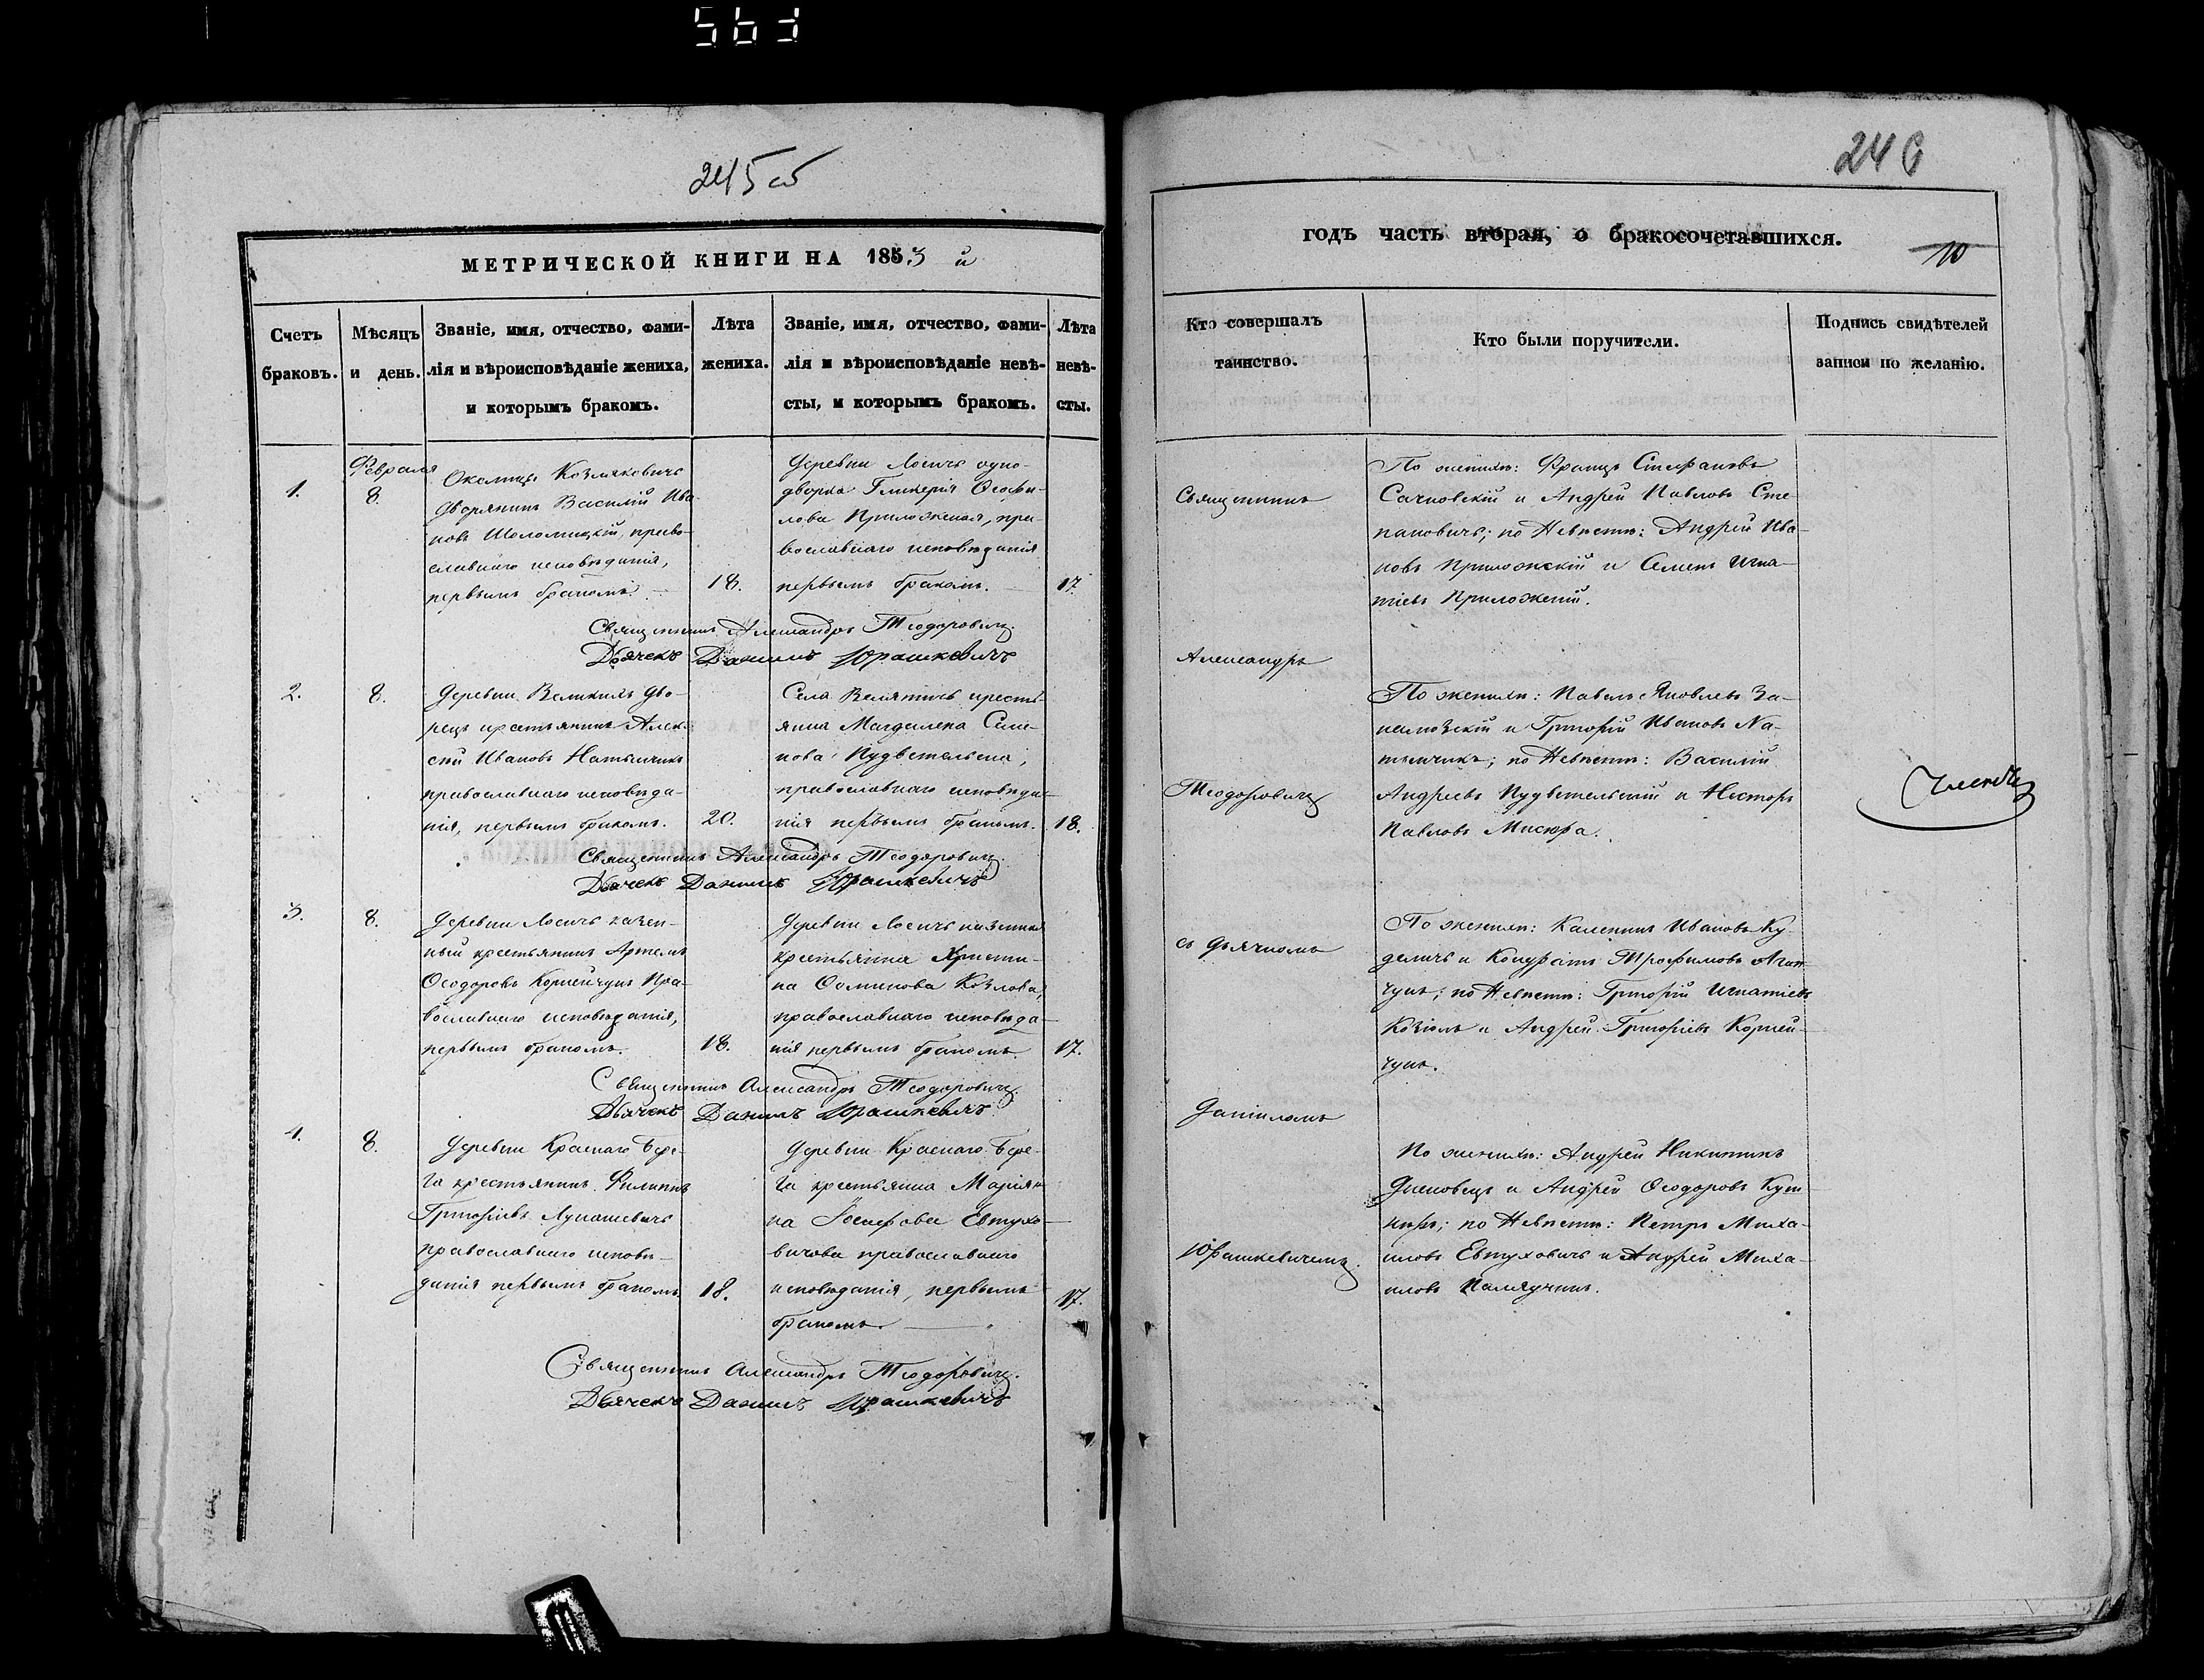 245 об
МЕТРИЧЕСКОЙ КНИГИ НА 1853 й
Счетъ браковъ.
Мѣсяцъ и день.
Званіе, имя, отчество, фами-
лія и вѣроисповѣданіе жениха,
и которымъ бракомъ.
Лѣта
жениха.
Званіе, имя, отчество, фами-
лія и вѣроисповѣданіе невѣ-
сты, и которымъ бракомъ.
Лѣта
невѣ-
сты.
1.
Февраля
8.
Околицы Козляковичъ
дворянинъ Василій Ива-
новъ Шоломицкій, право-
славнаго исповѣданія,
первымъ бракомъ.
18.
Деревни Лосичъ одно-
дворка Гликерія Ѳеофи-
лова Приложская, пра-
вославнаго исповѣданія
первымъ бракомъ.
17.
Священникъ Александръ Теодоровичъ.
Дьячекъ Данилъ Юрашкевичъ
2.
8.
Деревни Великихъ Дво-
рецъ крестьянинъ Алек-
сѣй Ивановъ Натынчикъ
православнаго исповѣда-
нія, первымъ бракомъ.
20.
Села Велятичъ кресть-
янка Магдалена Семе-
нова
православнаго исповѣда-
нія первымъ бракомъ.
18.
Священникъ Александръ Теодоровичъ.
Дьячекъ Данилъ Юрашкевичъ
3.
8.
Деревни Лосичъ казен-
ный крестьянинъ Артемъ
Ѳеодоровъ Корнейчукъ Пра-
вославнаго исповѣданія,
первымъ бракомъ.
18.
Деревни Лосичъ казенная
крестьянка Христи-
на Фоминова Козлова,
православнаго исповѣда-
нія первымъ бракомъ.
17.
Священникъ Александръ Теодоровичъ.
Дьячекъ Данилъ Юрашкевичъ
4.
8.
Деревни Краснаго Бере-
га крестьянинъ Филиппъ
Григорьевъ Лукашевичъ
православнаго исповѣ-
данія первымъ бракомъ.
18.
Деревни Краснаго Бере-
га крестьянка Маріян-
на Іосифова Евтухо-
вичова православнаго
исповѣданія, первымъ
бракомъ.
17.
Священникъ Александръ Теодоровичъ.
Дьячекъ Данилъ Юрашкевичъ
246
годъ часть вторая, о бракосочетавшихся.
10
Кто совершалъ
таинство.
Кто были поручители.
Подпись свидѣтелей
записи по желанію.
Священникъ
Александръ
Теодоровичъ
съ дьячкомъ
Даніиломъ
Юрашкевичемъ.
По женихѣ: Францъ Стефановъ
Сачковскій и Андрей Павловъ Сте-
пановичъ; по Невѣстѣ: Андрей Ива-
новъ Приложскій и Семенъ Игна-
тіевъ Приложскій.
По женихѣ: Павелъ Яковлевъ
и Григорій Ивановъ На-
тынчикъ; по Невѣстѣ: Василій
Андреевъ и Несторъ
Павловъ Мисюра.
По женихѣ: Каленикъ Ивановъ Ку-
деличъ и Кондратъ Трофимовъ
по Невѣстѣ: Григорій Игнатіевъ
Козіолъ и Андрей Григорьевъ Корней-
чукъ.
По женихѣ: Андрей Никитинъ
и Андрей Ѳеодоровъ
по Невѣстѣ: Петръ Миха-
иловъ Евтуховичъ и Андрей Миха-
иловъ